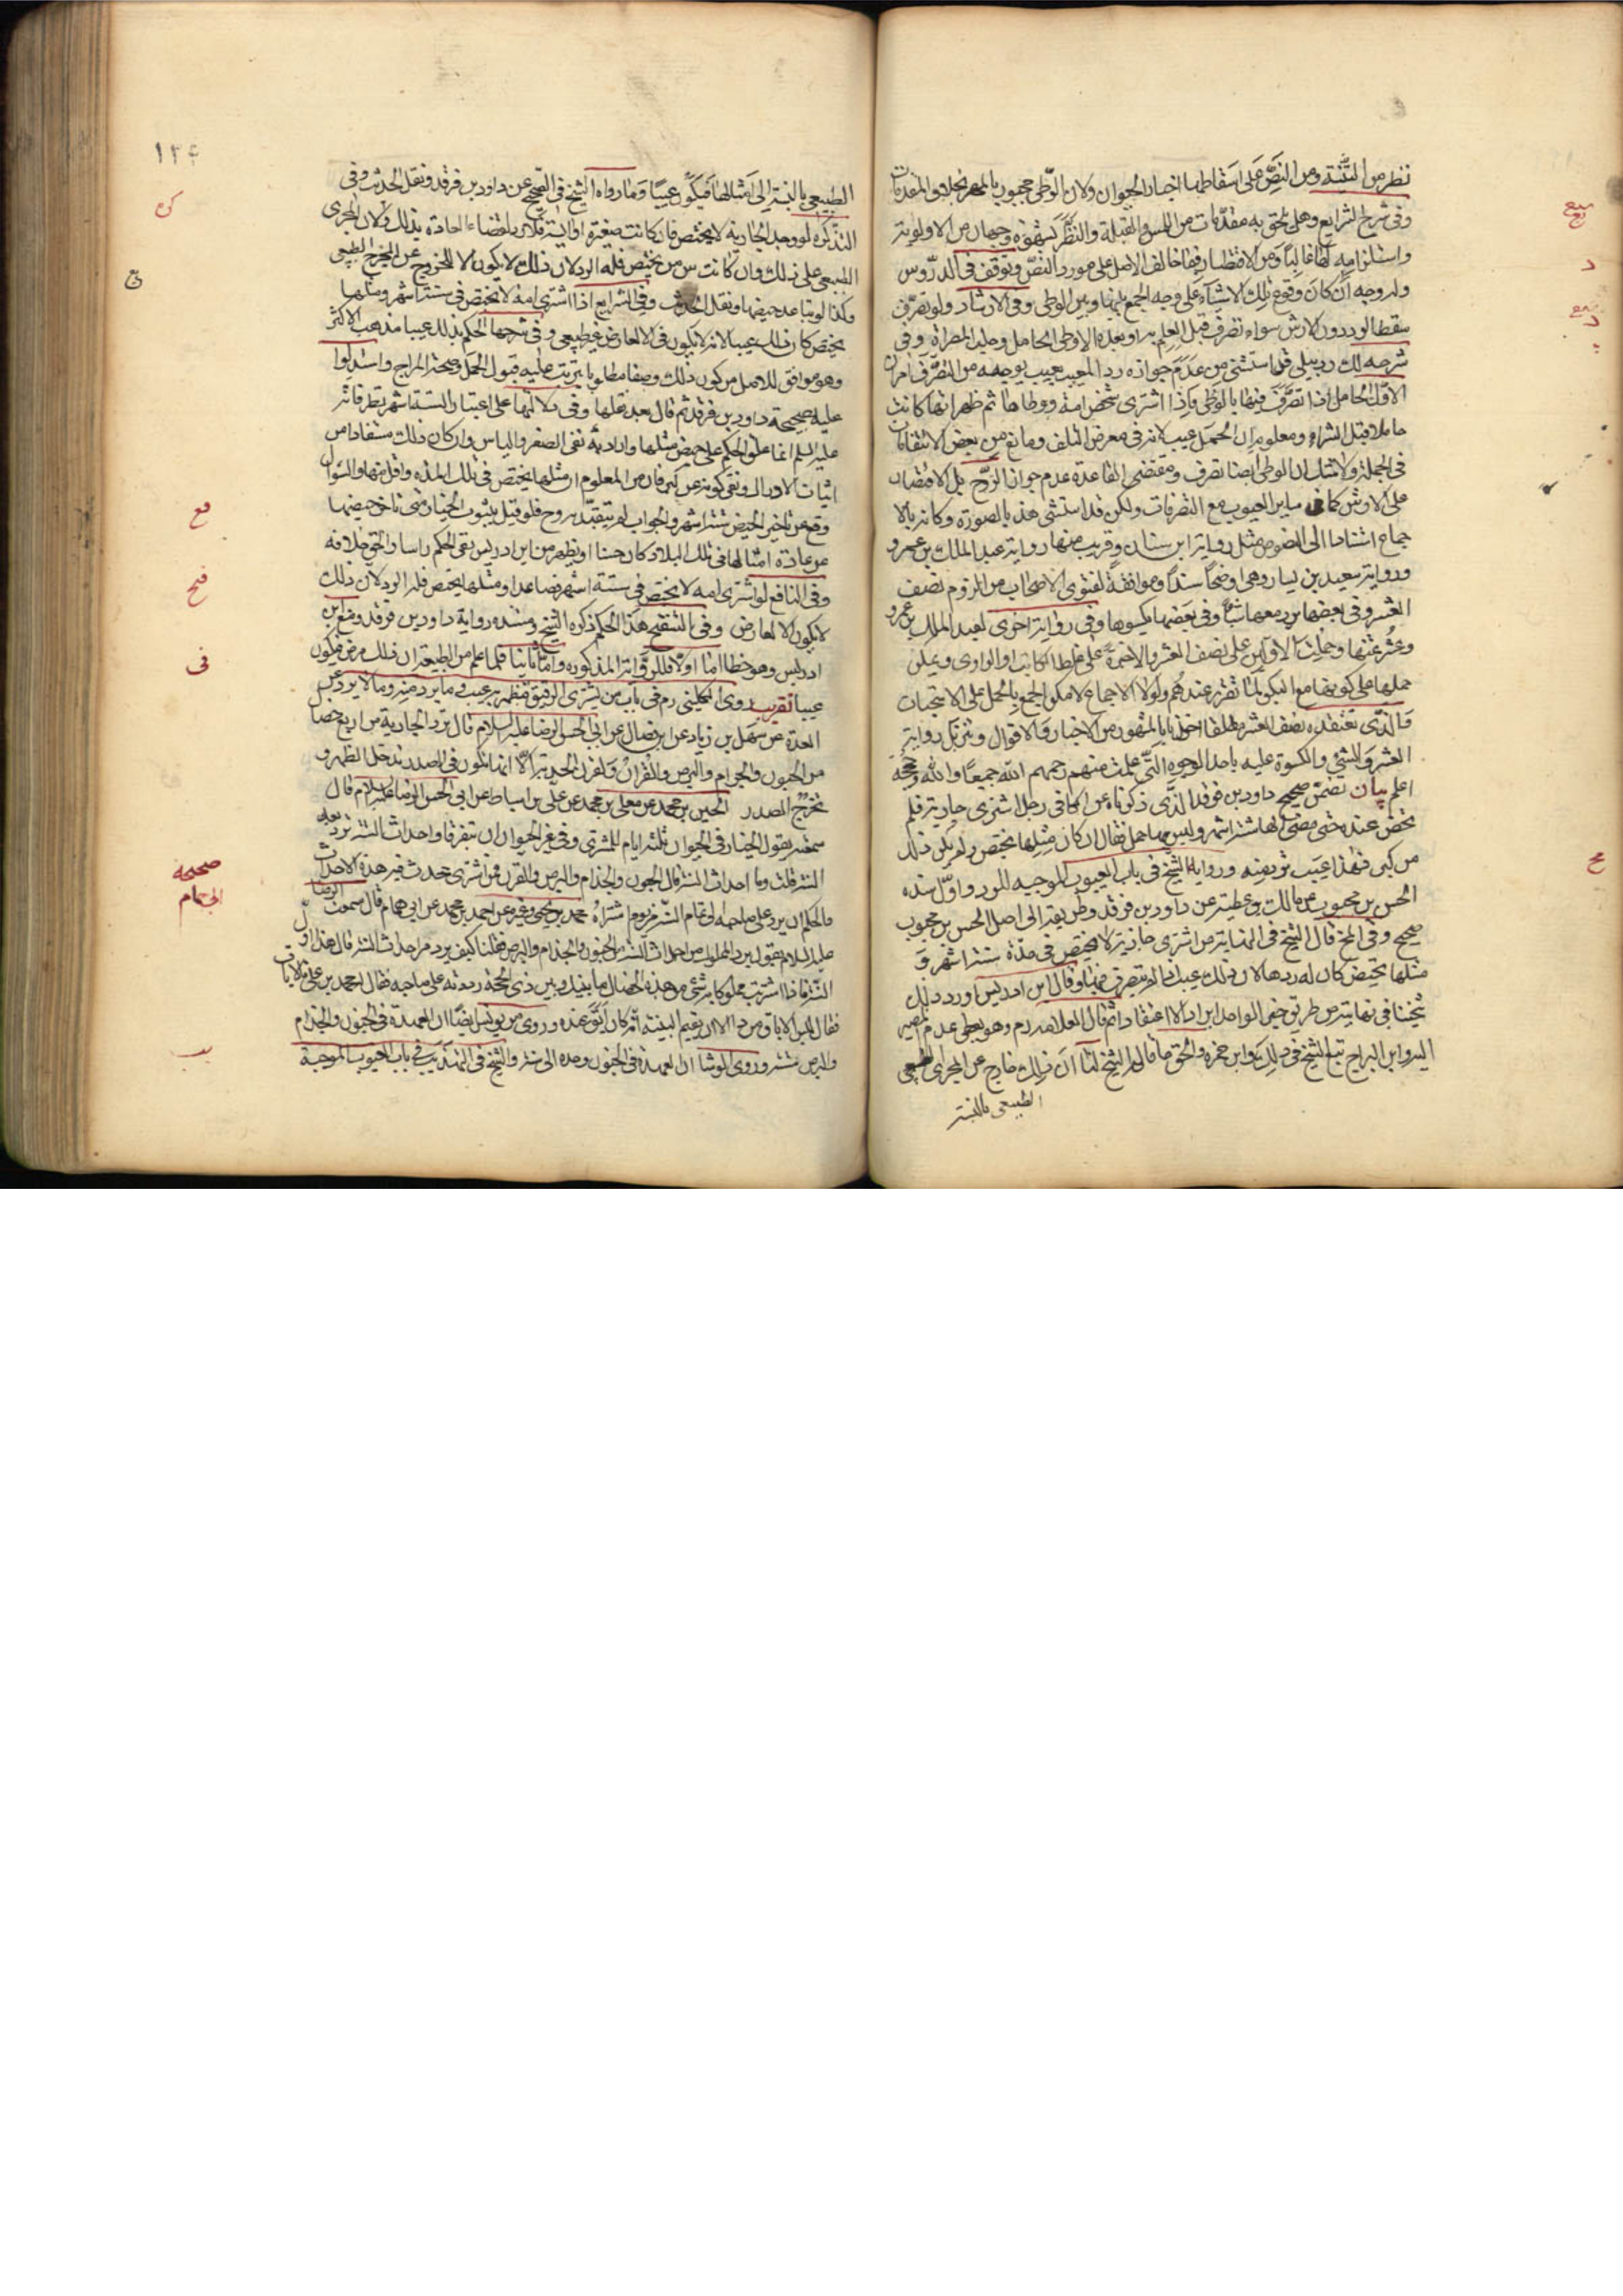 نظر من التتمة ومن النص على اسقاطها اخبار الحيوان ولان الوطى مجبور بالمهر بخلاف المقدمات
وفى شرح الشرايع وهل يلحق به مقدمات من اللمس والقبلة والنظر بشهوة وجهان من الاولوية
واستلزامه لها غالبا ومن الاقتصار فيما خالف الاصل على مورد النص وتوقف فى الدروس
وله وجه ان كان وقوع تلك الاشياء على وجه الجمع بينها وبين الوطى وفى الارشاد ولو تصرف
سقط الرد دون الارش سواء تصرف قبل العلم به او بعده الا وطى الحامل وحلب المصراة وفى
شرحه قد استثنى من عدم جوازه رد المعيب بعيب يوجبه من التصرف امران
الاول الحامل اذا تصرف فيها بالوطى فاذا اشترى شخص امة ووطاها ثم ظهر انها كانت
حاملا قبل الشراء ومعلوم ان الحمل عيب لانه فى معرض التلف ومانع من بعض الانتفاعات
فى الجملة ولا شك ان الوطى ايضا تصرف ومقتضى القاعدة عدم جواز الرد بل الاقتصار
على الارش كما فى ساير العيوب مع التصرفات ولكن قد استثنى هذه الصورة وكانه بالا
جماع استنادا الى النصوص مثل رواية ابن سنان وقريب منها رواية عبد الملك بن عمرو
ورواية سعيد بن يسار وهى اوضحها سندا وموافقة لفتوى الاصحاب من لزوم نصف
العشر وفى بعضها يرد معها شيئا وفى بعضها يكسوها وفى رواية اخرى لعبد الملك بن عمرو
وعشر ثمنها وحملت الاولتين على نصف العشر والاخيرة على غلط الكاتب او الراوى ويمكن
حملها على كونها مع البكر لما تقرر عندهم ولولا الاجماع لامكن الجمع بالحمل على الاستحباب
فالذى نعتقده نصف العشر مطلقا اخذا بالمشهور من الاخبار والاقوال وتنزل رواية
العشر والشئ والكسوة عليه باحد الوجوه التى علمت منهم رحمهم الله جميعا والله وحججه
اعلم بيان تضمن صحيح داود بن فرقد الذى ذكرناه عن الكافى رجل اشترى جارية فلم
تحض عنده حتى مضى لها ستة اشهر وليس بها حمل فقال ان كان مثلها تحيض ولم يكن ذلك
من كبر فهذا عيب ترد منه ورواه الشيخ فى باب العيوب الموجبه للرد واول سنده
الحسن بن محبوب عن مالك بن عطية عن داود بن فرقد وطريقه الى اصل الحسن بن محبوب
صحيح وفى المخ قال الشيخ فى النهاية من اشترى جارية لا تحيض فى مدة ستة اشهر و
مثلها تحيض كان له ردها لان ذلك عيب اذا لم يتصرف فيها وقال ابن ادريس اورد ذلك
شيخنا فى نهايته من طريق خبر الواحد ايرادا لا اعتقادا ثم قال العلامه ره وهو يعطى عدم المصير
اليه وابن البراج تبع الشيخ فى ذلك وابن حمزه والحق ما قاله الشيخ لنا ان ذلك خارج عن المجرى الطبيعى
الطبيعى بالنسبة
١٣٤
الطبيعى بالنسبة الى امثالها فيكون عيبا وما رواه الشيخ فى الصحيح عن داود بن فرقد ونقل الحديث وفى
التذكره لو وجد الجارية لا تحيض فان كانت صغيرة او آيسة فلا رد لقضاء العادة بذلك ولان المجرى
الطبيعى على ذلك وان كانت من سن من تحيض فله الرد لان ذلك لا يكون الا للخروج عن المجرى الطبيعى
وكذا لو تباعد حيضها ونقل الحديث وفى الشرايع اذا اشترى امة لا تحيض فى ستة اشهر ومثلها
تحيض كان ذلك عيبا لانه لا يكون الا لعارض غير طبيعى وفى شرحها الحكم بذلك عيبا مذهب الاكثر
وهو موافق للاصل من كون ذلك وصفا مطلوبا يترتب عليه قبول الحمل وصحة المزاج واستدلوا
عليه بصحيحة داود بن فرقد ثم قال بعد نقلها وفى دلالتها على اعتبار الستة اشهر نظر فانه
عليه السلم انما علق الحكم على حيض مثلها واراد به نفى الصغر والياس وان كان ذلك مستفادا من
اثبات الادراك ونفى كونه عن كبر فان من المعلوم ان مثلها تحيض فى تلك المدة واقل منها والسؤال
وقع عن تاخير الحيض ستة اشهر والجواب لم يتقيد به وح فلو قيل بثبوت الخيار متى تاخر حيضها
عن عادة امثالها فى تلك البلاد كان حسنا ويظهر من ابن ادريس نفى الحكم راسا والحق خلافه
وفى النافع لو اشترى امه لا تحيض فى ستة اشهر فصاعدا ومثلها تحيض فله الرد لان ذلك
لا يكون الا لعارض وفى التنقيح هذا الحكم ذكره الشيخ ومستنده رواية داود بن فرقد ومنع ابن
ادريس وهو خطا اما اولا فللرواية المذكوره واما ثانيا فلما علم من الطبيعة ان ذلك مرض فيكون
عيبا تقريب روى الكلينى ره فى باب من يشترى الرقيق فيظهر به عيب وما يرد منه وما لا يرد عن
العدة عن سهل بن زياد عن ابن فضال عن ابى الحسن الرضا عليه السلام قال ترد الجارية من اربع خصال
من الجنون والجذام والبرص والقرن والقرن الحدبة الا انها تكون فى الصدر تدخل الظهر و
تخرج الصدر الحسين بن محمد عن معلى بن محمد عن على بن اسباط عن ابى الحسن الرضا عليه السلام قال
سمعته يقول الخيار فى الحيوان ثلثة ايام للمشترى وفى غير الحيوان ان يتفرقا واحداث السنة ترد بعد
السنة قلت وما احداث السنة قال الجنون والجذام والبرص والقرن فمن اشترى فحدث فيه هذه الاحداث
فالحكم ان يرد على صاحبه الى تمام السنة من يوم اشتراه محمد بن يحيى وغيره عن احمد بن محمد عن ابى همام قال سمعت الرضا
عليه السلام يقول يرد المملوك من احداث السنة من الجنون والجذام والبرص فقلنا كيف يرد من احداث السنة قال هذا اول
السنة فاذا اشتريت مملوكا به شئ من هذه الخصال ما بينك وبين ذى الحجة رددته على صاحبه فقال له محمد بن على فالاباق
فقال ليس الاباق من ذا الا ان يقيم البينة انه كان ابق عنده وروى عن يونس ايضا ان العهدة فى الجنون والجذام
والبرص سنة وروى الوشا ان العهدة فى الجنون وحده الى سنة والشيخ فى التهذيب فى باب العيوب الموجبة
صحيحة
ابى همام